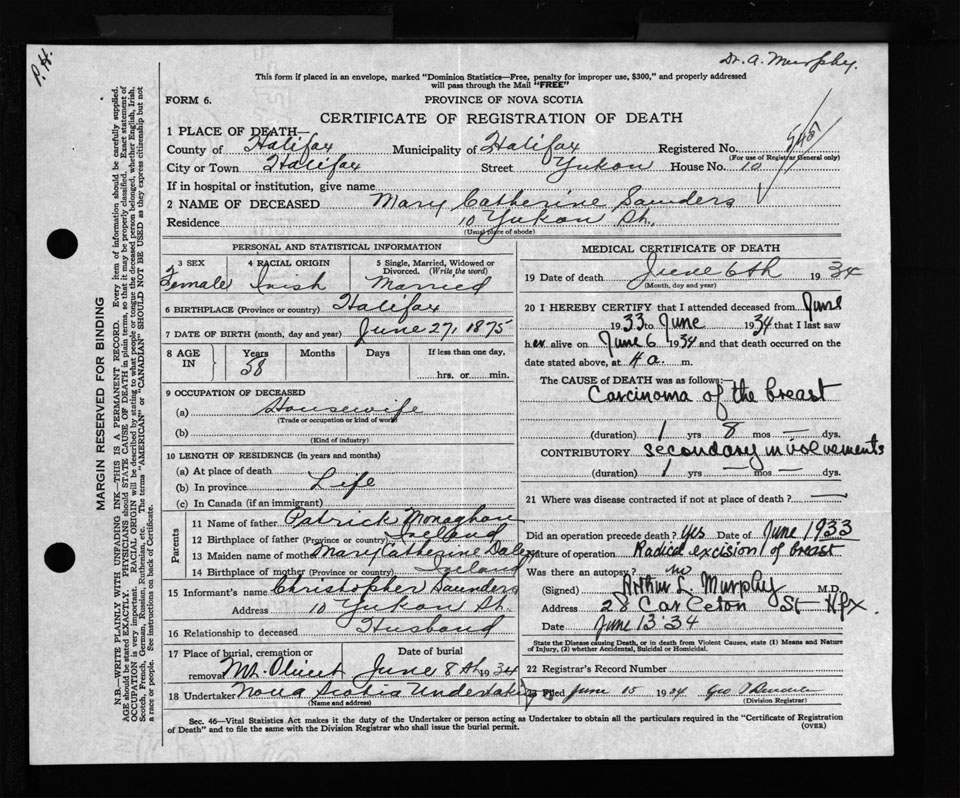 P.H.
Dr. A. Murphy.
This form if placed in an envelope, marked "Dominion Statistics—Free, penalty for improper use, $300," and properly addressed
will pass through the Mail "FREE"
FORM 6.
PROVINCE OF NOVA SCOTIA
CERTIFICATE OF REGISTRATION OF DEATH
1 PLACE OF DEATH—
County of Halifax Municipality of Halifax Registered No. 545
(For use of Registrar General only)
City or Town Halifax Street Yukon House No. 10
If in hospital or institution, give name
2 NAME OF DECEASED Mary Catherine Saunders
Residence 10 Yukon St.
(Usual place of abode)
PERSONAL AND STATISTICAL INFORMATION
3 SEX 4 RACIAL ORIGIN 5 Single, Married, Widowed or
Divorced. (Write the word)
Female Irish Married
6 BIRTHPLACE (Province or country) Halifax
7 DATE OF BIRTH (month, day and year) June 27, 1875
8 AGE IN Years Months Days If less than one day,
58 hrs. or min.
9 OCCUPATION OF DECEASED
(a) Housewife
(Trade or occupation or kind of work)
(b)
(Kind of industry)
10 LENGTH OF RESIDENCE (in years and months)
(a) At place of death
(b) In province Life
(c) In Canada (if an immigrant)
Parents
11 Name of father Patrick Monaghan
12 Birthplace of father (Province or country) Ireland
13 Maiden name of mother Mary Catherine Daley
14 Birthplace of mother (Province or country) Ireland
15 Informant's name Christopher Saunders
Address 10 Yukon St.
16 Relationship to deceased Husband
17 Place of burial, cremation or Date of burial
removal Mt. Olivet June 8th 1934
18 Undertaker Nova Scotia Undertaking
(Name and address)
MEDICAL CERTIFICATE OF DEATH
19 Date of death June 6th 1934
(Month, day and year)
20 I HEREBY CERTIFY that I attended deceased from June
1933 to June 1934 that I last saw
her alive on June 6 1934 and that death occurred on the
date stated above, at 4 a. m.
The CAUSE of DEATH was as follows:
Carcinoma of the breast
(duration) 1 yrs 8 mos — dys.
CONTRIBUTORY secondary involvements
(duration) 1 yrs — mos — dys.
21 Where was disease contracted if not at place of death? —
Did an operation precede death? yes Date of June 1933
Nature of operation Radical excision of breast
Was there an autopsy? no
(Signed) Arthur L. Murphy M.D.
Address 28 Carleton St Hfx.
Date June 13 '34
State the Disease causing Death, or in death from Violent Causes, state (1) Means and Nature
of Injury, (2) whether Accidental, Suicidal or Homicidal.
22 Registrar's Record Number
Filed June 15 1934 Geo
(Division Registrar)
Sec. 46—Vital Statistics Act makes it the duty of the Undertaker or person acting as Undertaker to obtain all the particulars required in the "Certificate of Registration
of Death" and to file the same with the Division Registrar who shall issue the burial permit.
(OVER)
MARGIN RESERVED FOR BINDING
N.B.—WRITE PLAINLY WITH UNFADING INK—THIS IS A PERMANENT RECORD. Every item of information should be carefully supplied.
AGE should be stated EXACTLY. PHYSICIANS should STATE CAUSE OF DEATH in plain terms, so that it may be properly classified. Exact statement of
OCCUPATION is very important. RACIAL ORIGIN will be described by stating to what people or tongue the deceased person belonged, whether English, Irish,
Scotch, French, German, Russian, Ruthenian, etc. The terms "AMERICAN" or "CANADIAN" SHOULD NOT BE USED as they express citizenship but not
a race or people. See instructions on back of Certificate.